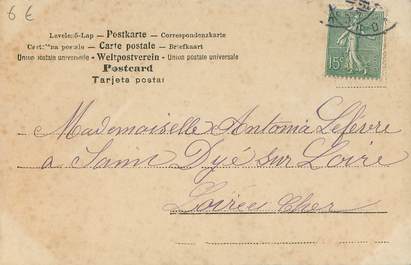 6 €
Levelező-Lap — Postkarte — Correspondenzkarte
Cart postale — Carte postale — Briefkaart
Union postale universelle — Weltpostverein — Union postale universelle
Postcard
Tarjeta postal
15c
Mademoiselle Antonia Lefèvre
à Saint Dyé sur Loire
Loir et Cher